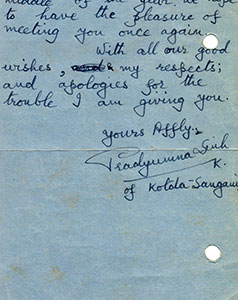 middle of the year. We hope
to have the pleasure of
meeting you once again.
With all our good
wishes, my respects;
and apologies for the
trouble I am giving you.
Yours Affly.,
Pradyumna Sinh
K.
of Kotda-Sangani